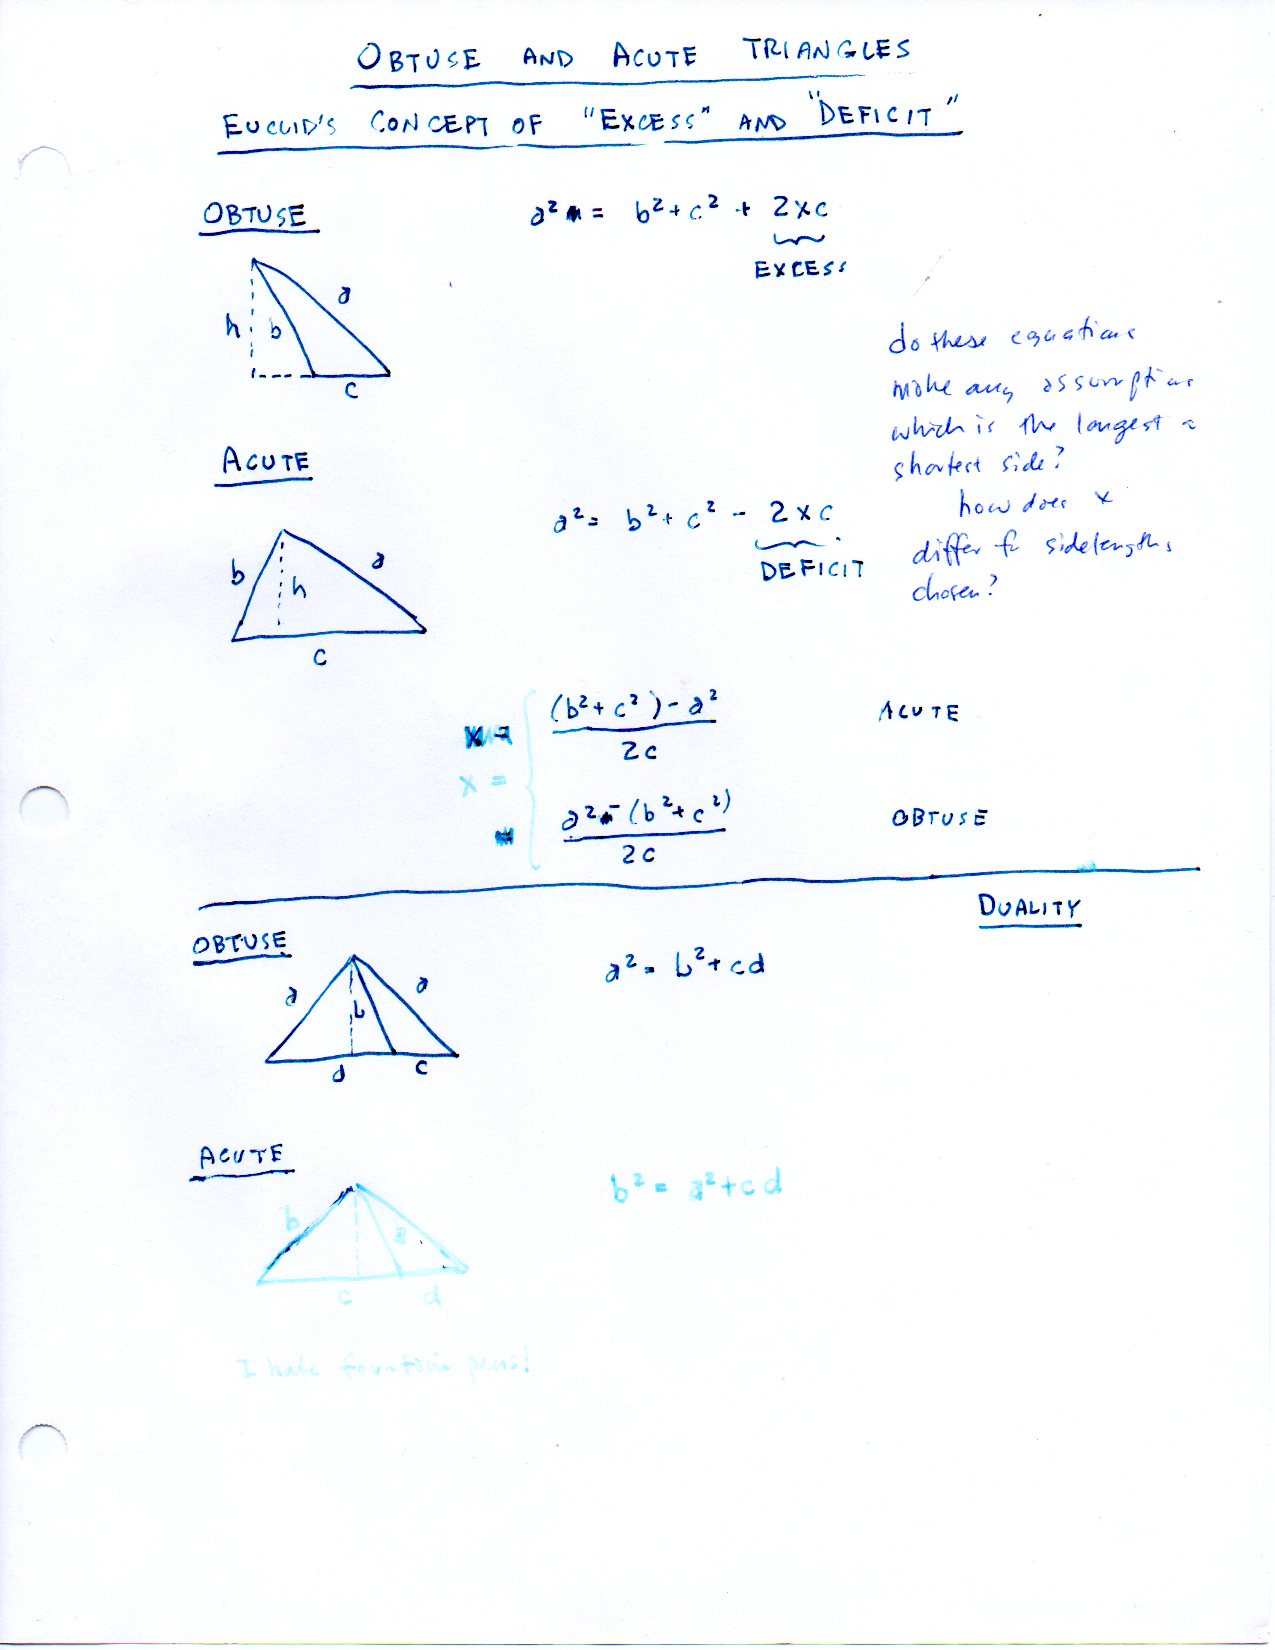 OBTUSE AND ACUTE TRIANGLES
EUCLID'S CONCEPT OF "EXCESS" AND "DEFICIT"
OBTUSE
a² = b² + c² + 2xc
EXCESS
a
h
b
c
do these equations
make any assumptions
which is the longest or
shortest side?
how does x
differ for sidelengths
chosen?
ACUTE
a² = b² + c² - 2xc
DEFICIT
b
h
a
c
(b² + c²) - a²
2c
ACUTE
x =
a² - (b² + c²)
2c
OBTUSE
DUALITY
OBTUSE
a² = b² + cd
a
b
a
d
c
ACUTE
b² = a² + cd
b
a
c
d
I hate fountain pens!